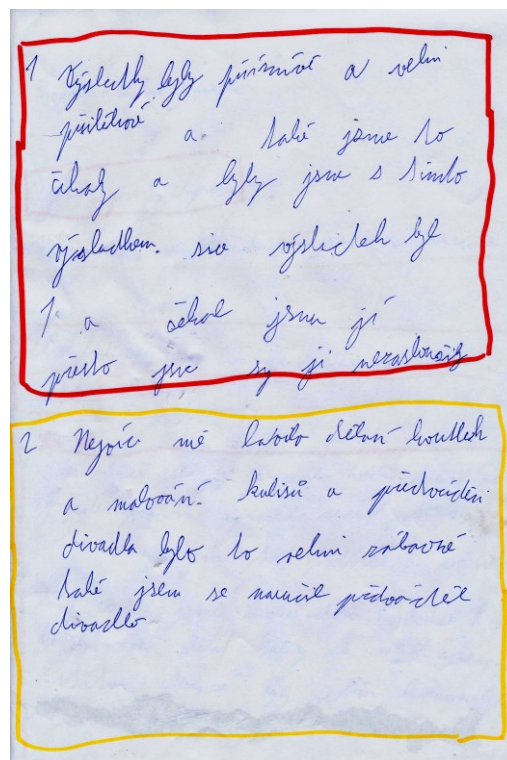 1 Výsledky byly příznivé a velmi
přiletivé a. také jsme to
čekaly a byly jsme s tímto
výsladkem. sice výsledek byl
1 a čekal jsem jí
přesto jsme sy ji nezasloužily
2 Nejvíc mě bavilo dělaní loutkek
a malování kulisů a předvádění
divadla bylo to velmi zábavné
také jsem se naučil předvádět
divadlo